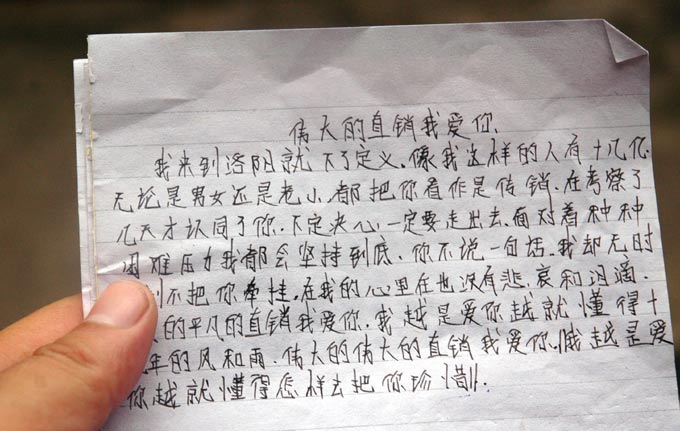 伟大的直销我爱你.
我来到洛阳就下了定义.像我这样的人有十几亿.
无论是男女还是老小.都把你看作是传销.在考察了
几天才认同了你.下定决心一定要走出去.面对着种种
困难压力我都会坚持到底.你不说一句话.我却无时
不把你牵挂.在我的心里在也没有悲.哀和泪滴.
的平凡的直销我爱你.我越是爱你越就懂得十
年的风和雨.伟大的伟大的直销我爱你.哦越是爱
你越就懂得怎样去把你珍惜!.